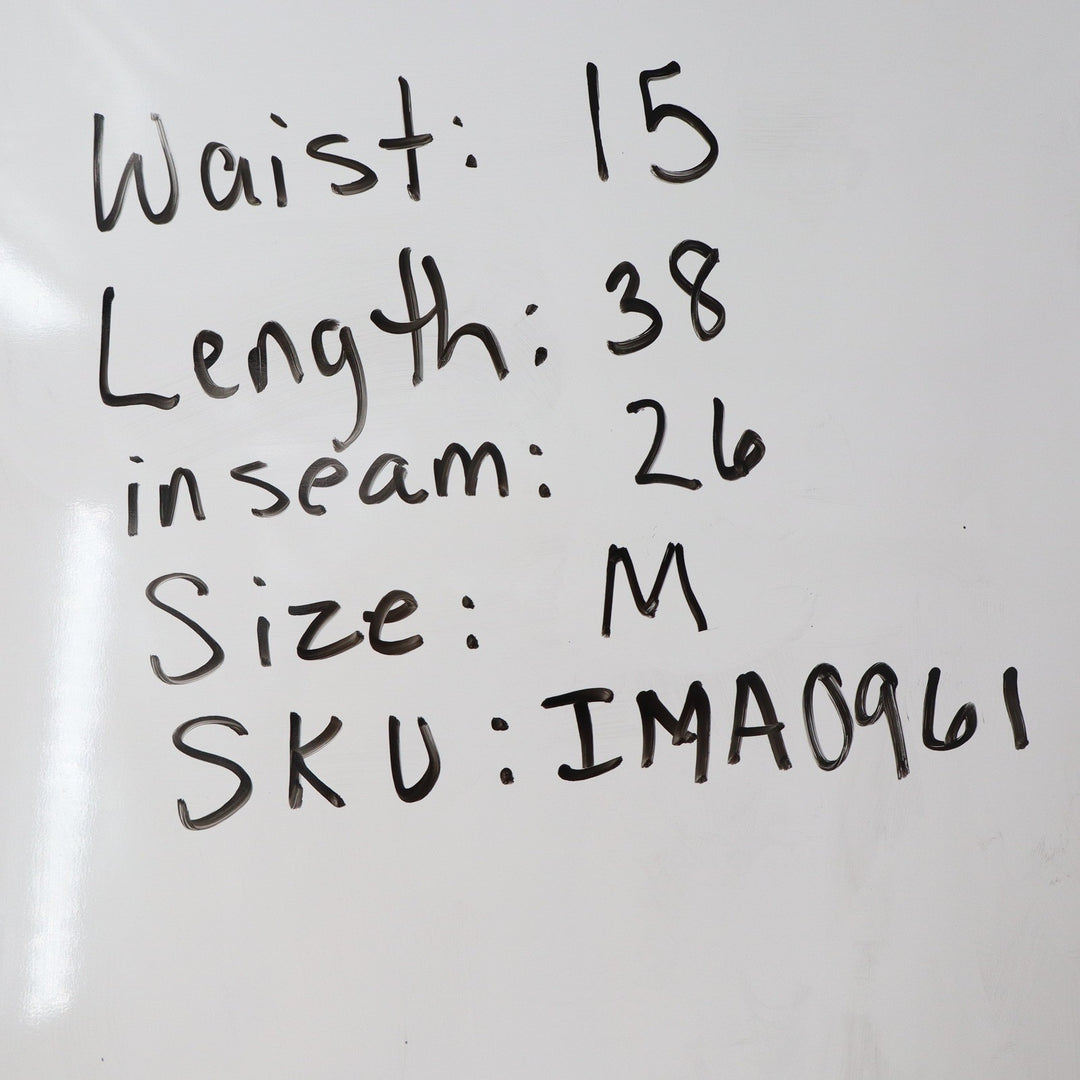 Waist: 15
Length: 38
inseam: 26
Size: M
SKU: IMA0961